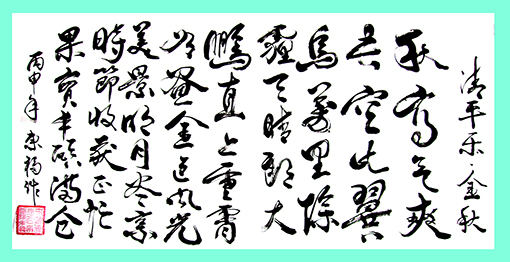 清平乐·金秋
秋高气爽
空比翼
鸟万里除
霾天晴朗大
鹏直上重霄
画金风光
美景明月
時節收获正忙
果实丰硕满仓
丙申年作